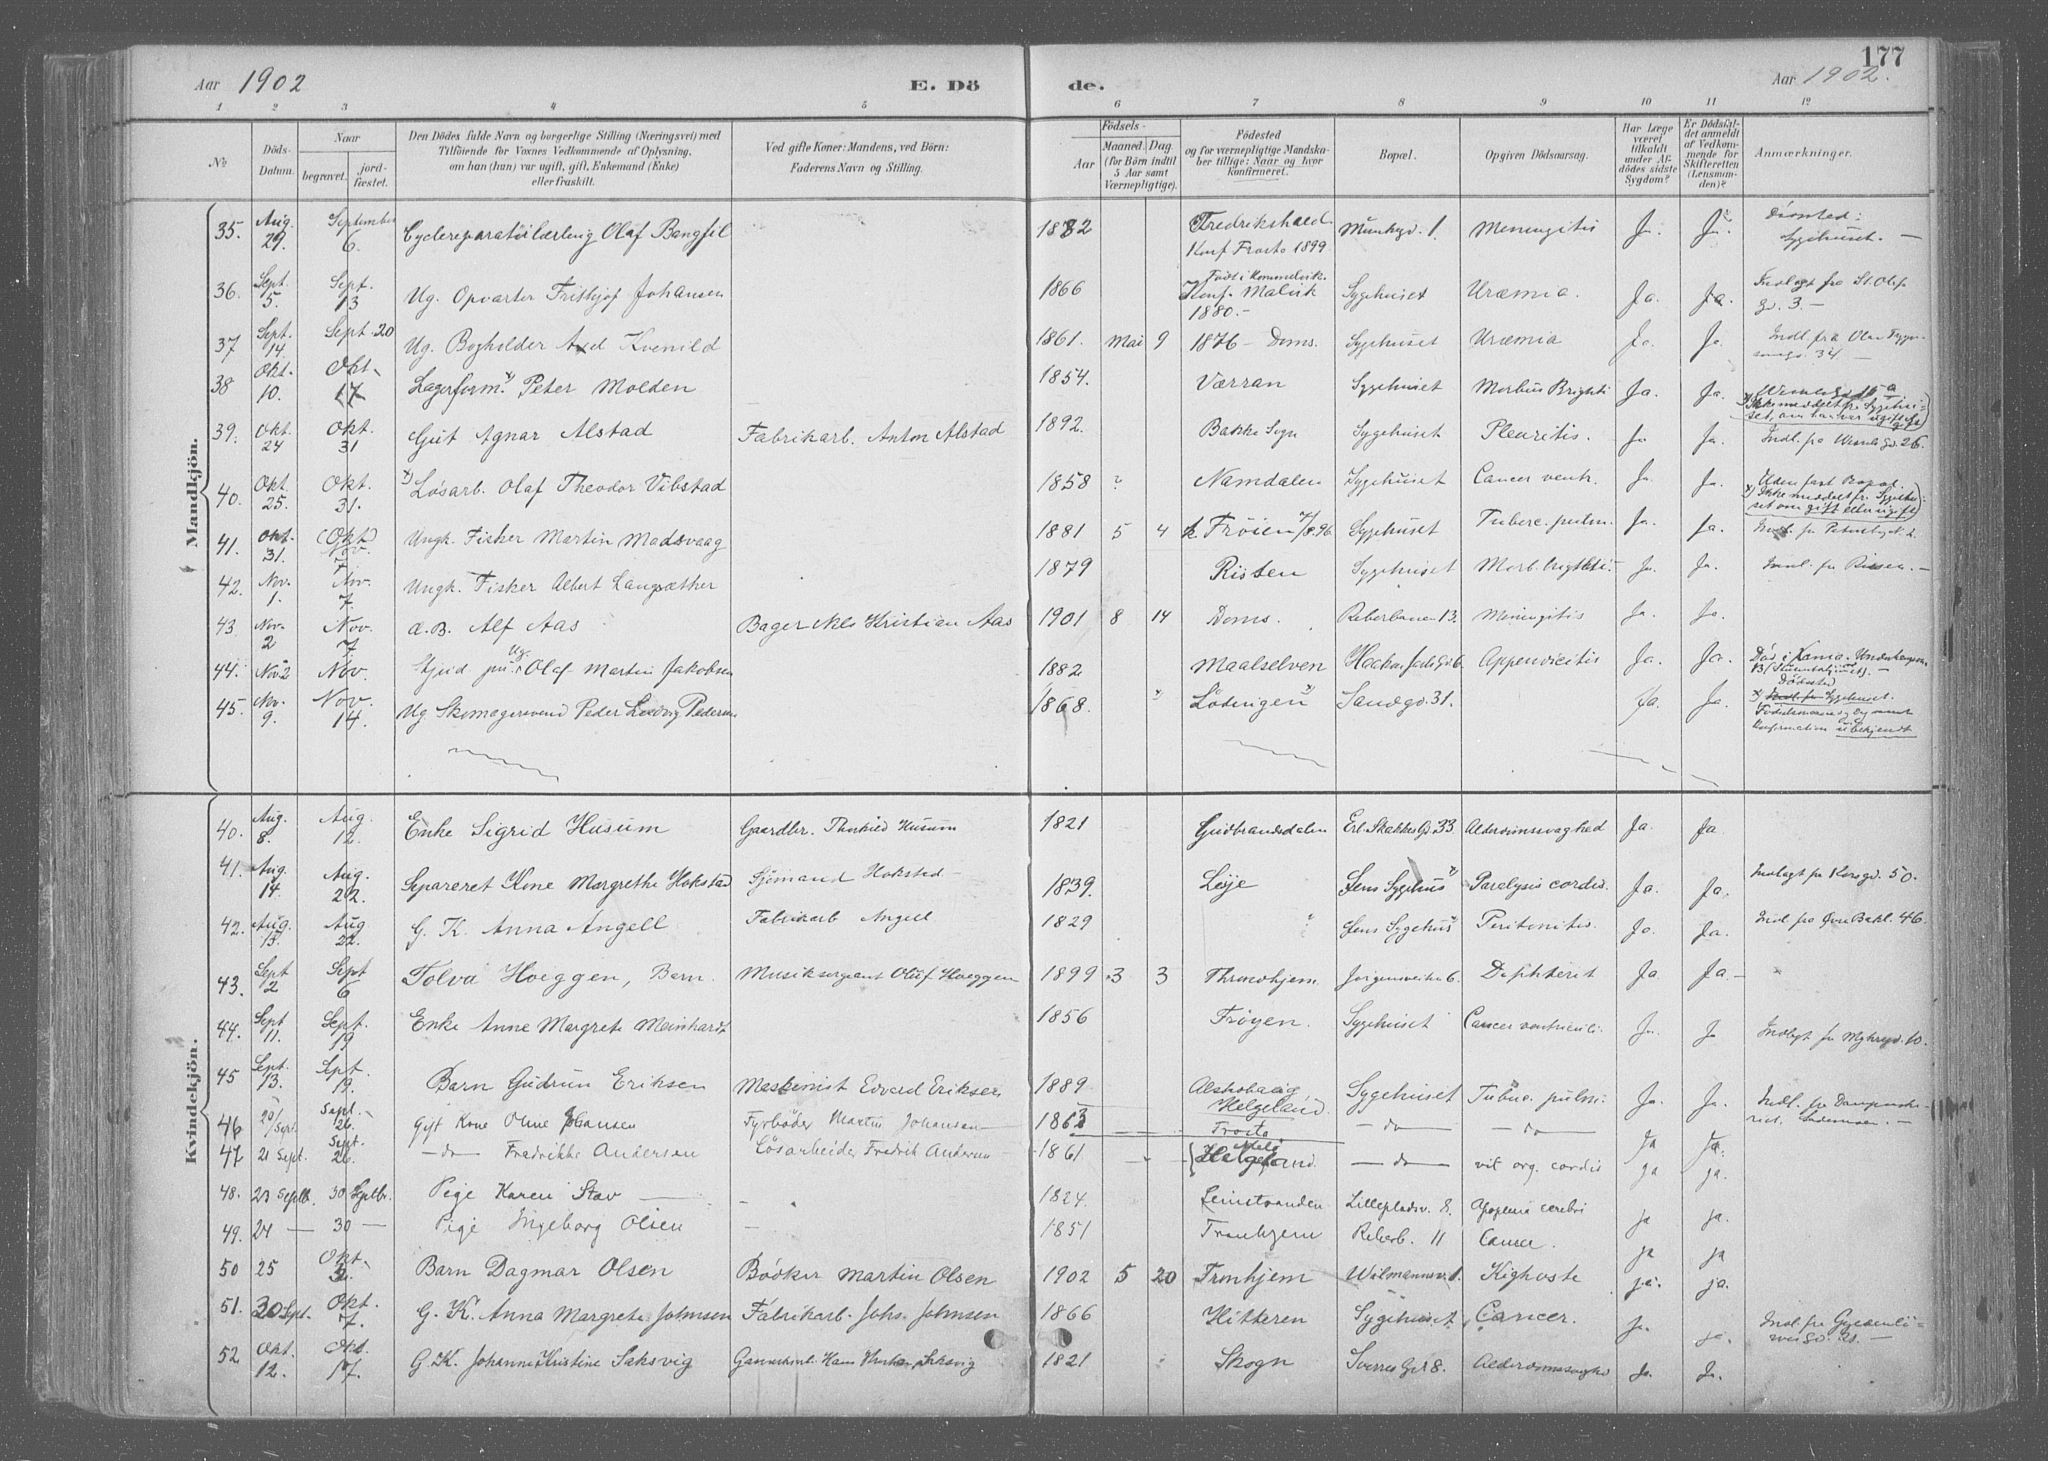 177
Aar 1902
E. Dö
de.
Aar 1902.
1 2 3 4 5 6 7 8 9 10 11 12
No
Döds-Datum.
Naar
begravet.
jord-fæstet.
Den Dödes fulde Navn og borgerlige Stilling (Næringsvei) med
Tilföiende for Voxnes Vedkommende af Oplysning,
om han (hun) var ugift, gift, Enkemand (Enke)
eller fraskilt.
Ved gifte Koner: Mandens, ved Börn:
Faderens Navn og Stilling.
Födsels-
Aar
Maaned. Dag.
(for Börn indtil
5 Aar samt
Værnepligtige).
Födested
og for værnepligtige Mandska-
ber tillige: Naar og hvor
konfirmeret.
Bopæl.
Opgiven Dödsaarsag.
Har Læge
været
tilkaldt
under Af-
dödes sidste
Sygdom?
Er Dödsfal-
det anmeldt
af Vedkom-
mende for
Skifteretten
(Lensman-
den)?
Anmærkninger.
Mandkjön.
35. Aug. 29. September 6. Cyclereparatörlærling Olaf Bangfil 1882 Fredrikshald. Konf Frosta 1899 Munkgd. 1. Meningitis Ja. Ja. Dödsted: Sygehuset. —
36. Sept. 5. Sept. 13 Ug. Opvarter Frithjof Johansen 1866 Født i Hommelvik. Konf. Malvik 1880. - Sygehuset Uræmia. Ja. Ja. Indlagt fra St. Olafs gd. 3. —
37 Sept. 14. Sept. 20 Ug. Bogholder Axel Kvenild 1861. Mai 9 1876 - Doms. Sygehuset Uræmia Ja. Ja. Indl. fra Olav Trygv. gd. 34 —
38 Okt. 10. Okt. 17 Lagerform. x) Peter Molden 1854. Værran Sygehuset Morbus Brighti Ja. Ja. x) Ikke meddelt fr. Sygehuset, om han var ugift
39. Okt. 24 Okt. 31 Gut Agnar Alstad Fabrikarb. Anton Alstad 1892. Bakke Sogn Sygehuset Pleuritis. Ja Ja. Indl. fra Wessels Gd. 26.
40. Okt. 25. Okt. 31. x) Løsarb. Olaf Theodor Vibstad 1858 ? Namdalen Sygehuset Cancer ventr. Ja. Ja. Uden fast Bopæl. x) Ikke meddelt fr. Sygehuset om gift eller ugift
41. Okt. 31. (Okt) Nov. 7 Ungk. Fisker Martin Madsvaag 1881 5 4 k Frøien /8.96 Sygehuset Tuberc. pulm. Ja. Ja.
42. Nov. 1. Nov. 7. Ungk. Fisker Albert Langsæther 1879 Risten Sygehuset Morb. brightii Ja. Ja. Indl. fra Rissen. —
43. Nov. 2 Nov. 7 d. B. Alf Aas Bager Nils Kristian Aas 1901 8 14 Doms. Reberbanen 13. Meningitis Ja. Ja.
44. Nov. 2 Nov. Ug. Olaf Martin Jakobsen 1882 Maalselven Appendicitis Ja. Ja.
45. Nov. 9. Nov. 14. Ug Skomagersvend Peder Ludvig Pedersen 1868. Lödingen x) Sandgd. 31. Ja. Ja. Dödsted Sygehuset. Födselsmaaned og Dag samt Konfirmation ubekjendt
Kvindekjön.
40. Aug. 8. Aug. 12. Enke Sigrid Husum Gaardbr. Thorkild Husum 1821 Gudbrandsdalen Erl. Skakkes Gd. 33 Alderdomssvaghed Ja. Ja.
41. Aug. 14 Aug. 22. Separeret Kone Margrethe Hokstad Sjömand Hokstad — 1839. Leje Sens Sygehus x) Paralysis cordis. Ja. Ja. Indlagt fra Kongsgd. 50.
42. Aug. 15. Aug 22. G. K. Anna Angell Fabrikarb Angell 1829 " Sens Sygehus x) Peritonitis. Ja. Ja. Indl. fra Øvre Bakl. 46.
43. Sept 2 Sept 6 Tolva Hoeggen, Barn. Musiksergeant Oluf Hoeggen 1899 3 3 Throndhjem. Jørgensveita 6. Diphterit Ja. Ja —
44. Sept 11. Sept. 19 Enke Anne Margrete Meinhardt 1856 Frøyen. Sygehuset Cancer ventriculi. Ja. Ja
45 Sept. 13. Sept. 19. Barn Gudrun Eriksen Maskinist Edvard Eriksen 1889 Alstahaug Helgeland. Sygehuset Tuberc. pulm. Ja. Ja.
46 20/Sept. Sept. 26. Gift Kone Oline Johansen Fyrböder Martin Johansen — 1863 Frosta — do — — do — Ja Ja.
47. 21 Sept. Sept. 26. — do — Fredrikke Andersen Løsarbeider Fredrik Andersen 1861 — do — vit. org. cordis ja ja.
48. 23 Septb. 30 Septbr. Pige Karen Stav — 1824. Leinstranden Lillepladsv. 8. Apoplexia cerebri ja ja.
49. 24 — 30 — Pige Ingeborg Olsen — 1851 Tronhjem Reberb. 11 Cancer. ja ja
50 25 Okt. 2. Barn Dagmar Olsen Bödker Martin Olsen 1902 5 20 Tronhjem Wilmannsv. 1. Kighoste ja. ja.
51. 30 Sept. Okt. 7. G. K. Anna Margrete Johnsen Fabrikarb. Johs. Johnsen 1866 Hitteren Sygehuset Cancer. Ja. Ja.
52 Okt. 12. Okt. 17. G. K. Johanne Kristine Saksvig 1821 Skogn Sverres Gd 8. Alderdomssvaghed Ja. Ja.